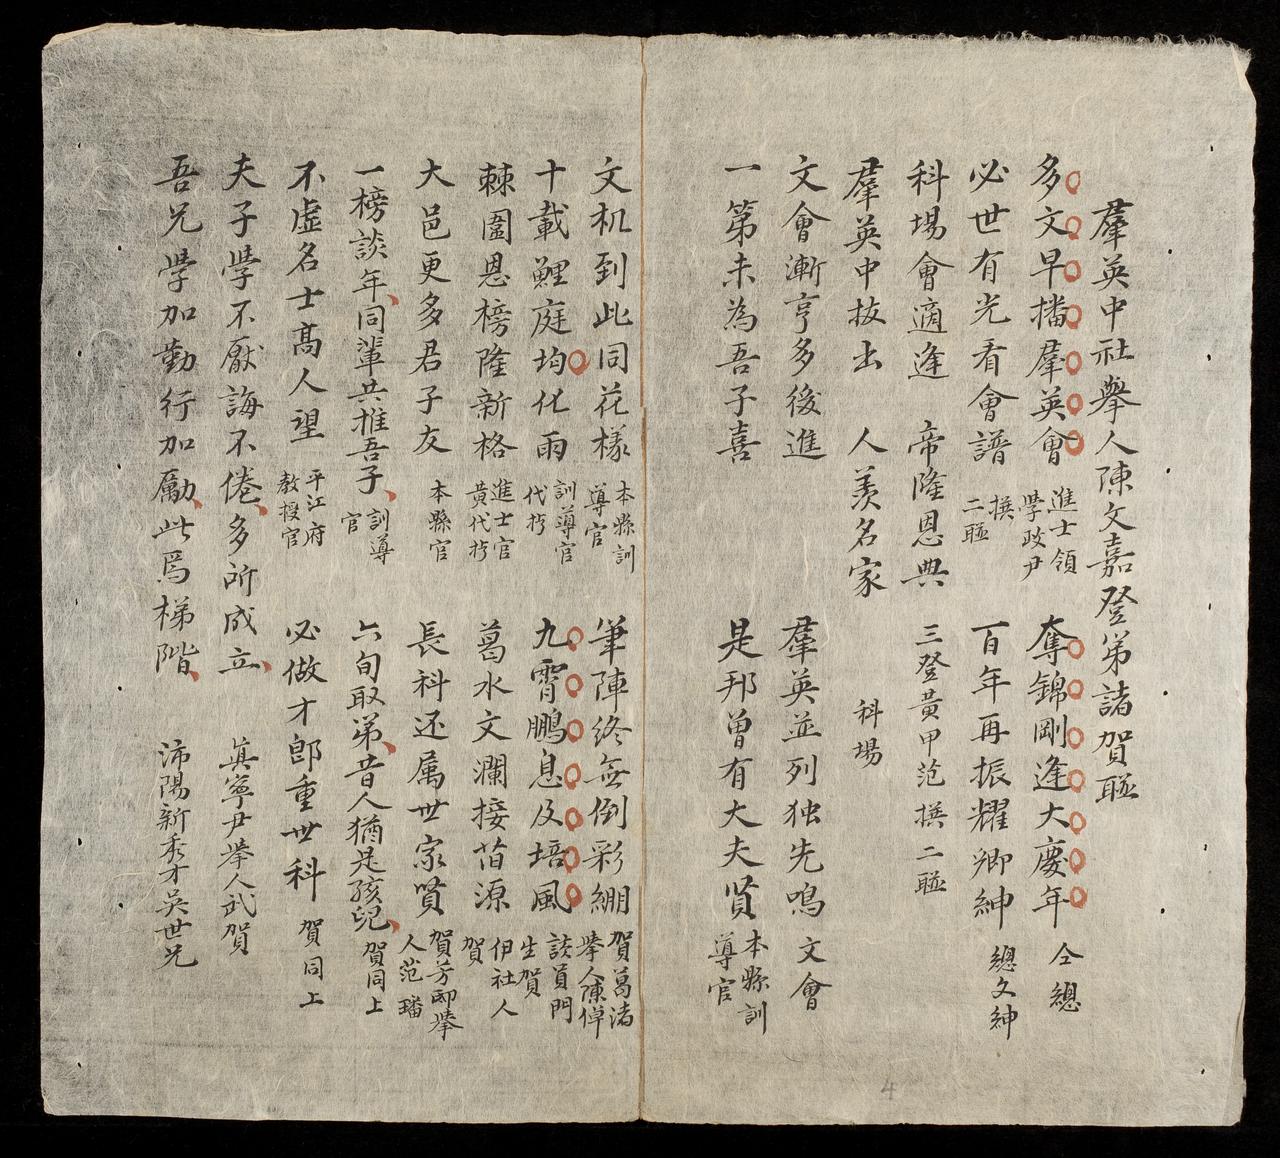 羣英中社舉人陳文嘉登弟諸賀聮
多文早播羣英會 進士領學政尹 奪錦剛逢大慶年 仝總
必世有光看會譜 撰二聮 百年再振耀卿紳 總文紳
科塲會適逢 帝隆恩典 三登黃甲范撰二聮
羣英中拔出 人羨名家 科塲
文會漸亨多後進 羣英並列独先鳴 文會
一第未為吾子喜 是邦曾有大夫賢 本縣訓導官
文机到此同花樣 本縣訓導官 筆陣終無倒彩綳 賀葛渚舉人陳倬
十載鯉庭均化雨 訓導官代抄 九霄鵬息及培風 該員門生賀
棘圍恩榜隆新格 進士官黃代抄 葛水文瀾接笛源 伊社人賀
大邑更多君子友 本縣官 長科还属世家賢 賀芳邸舉人范璠
一榜談年同輩共推吾子 訓導官 六旬取弟昔人猶是孩兒 賀同上
不虛名士髙人望 平江府教授官 必做才郎重世科 賀同上
夫子學不厭誨不倦多所成立 真寧尹舉人武賀
吾兄學加勤行加勵此爲梯階 沛陽新秀才吳世兄
4